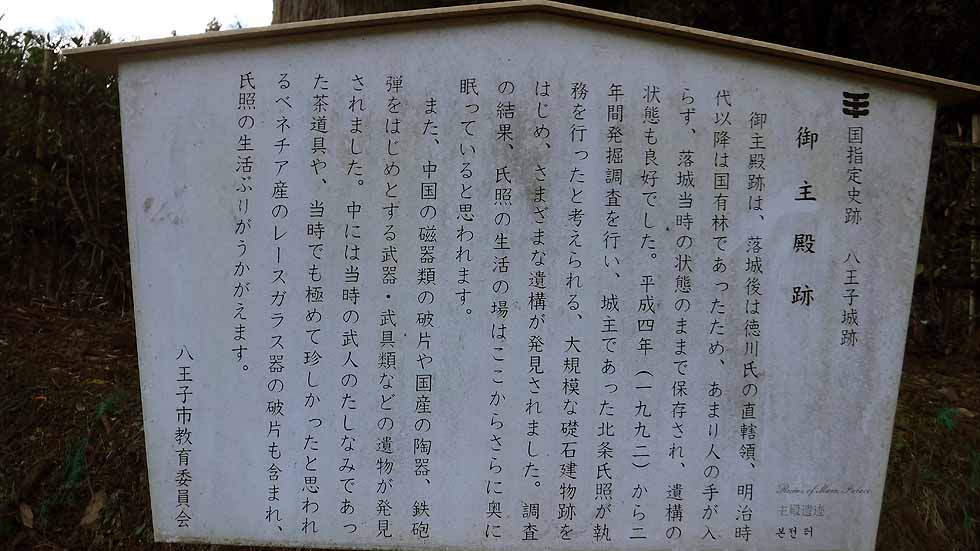 国指定史跡 八王子城跡
御主殿跡
御主殿跡は、落城後は徳川氏の直轄領、明治時
代以降は国有林であったため、あまり人の手が入
らず、落城当時の状態のままで保存され、遺構の
状態も良好でした。平成四年(一九九二)から二
年間発掘調査を行い、城主であった北条氏照が執
務を行ったと考えられる、大規模な礎石建物跡を
はじめ、さまざまな遺構が発見されました。調査
の結果、氏照の生活の場はここからさらに奥に
眠っていると思われます。
また、中国の磁器類の破片や国産の陶器、鉄砲
弾をはじめとする武器・武具類などの遺物が発見
されました。中には当時の武人のたしなみであっ
た茶道具や、当時でも極めて珍しかったと思われ
るベネチア産のレースガラス器の破片も含まれ、
氏照の生活ぶりがうかがえます。
八王子市教育委員会
Ruins of Main Palace
主殿遗迹
본전 터